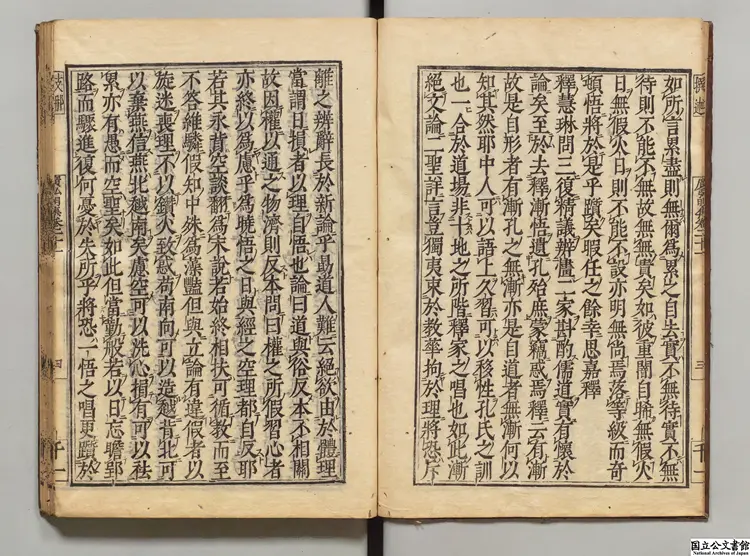 如所言累盡則無爾爲累之自去實不無待實不無
待則不能不無故無無貴矣如彼重闇自晞無假火
日無假火日則不能不設亦明無尚焉落等級而奇
頓悟將於是乎躓矣暇任之餘幸思嘉釋
釋慧琳問三復精議辨二家斟酌儒道實有懷於
論矣至於去釋漸悟遺孔殆庶蒙竊惑焉釋云有漸
故是自形者有漸孔之無漸亦是自道者無漸何以
知其然耶中人可以語上久習可以移性孔氏之訓
也一合於道場非十地之所階釋家之唱也如此漸
絕文論二聖詳言豈獨夷束於教華拘於理將恐斥
離之辨辭長於新論乎勗道人難云絕欲由於體理
當謂日損者以理自悟也論曰道與俗反本不相關
故因權以通之物濟則反本問曰權之所假習心者
亦終以爲慮乎爲曉悟之日與經之空理都自反耶
若其永背空談翻爲末說若始終相扶可循教而至
不答維驎假知中殊爲藻豔但與立論有違假者以
旋迷喪理不以鑽火致惑苟南向可以造越背北可
以棄燕信燕北越南矣慮空可以洗心捐有可以祛
累亦有愚而空聖矣如此但當勤般若以日忘瞻郢
路而驟進復何憂於失所乎將恐一悟之唱更躓於
四
国立公文書館
National Archives of Japan